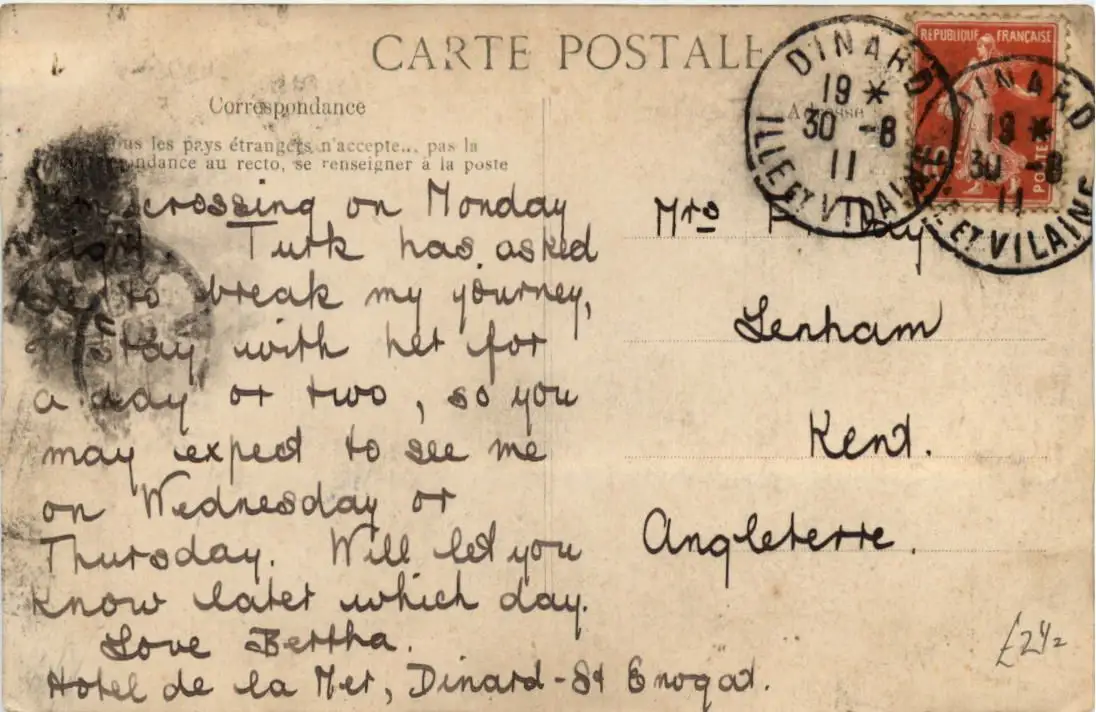 CARTE POSTALE
Correspondance
les pays étrangers n'accepte... pas la
au recto, se renseigner à la poste
crossing on Monday
Turk has asked
to break my journey,
stay with her for
a day or two, so you
may expect to see me
on Wednesday or
Thursday. Will let you
know later which day.
Love Bertha.
Hotel de la Mer, Dinard-St Enogat.
Adresse
Mrs Day
Lenham
Kent.
Angleterre.
REPUBLIQUE FRANÇAISE
POSTES
DINARD
19 *
30 -8
11
ILLE ET VILAINE
DINARD
19 *
30 -8
11
ET VILAINE
£2½